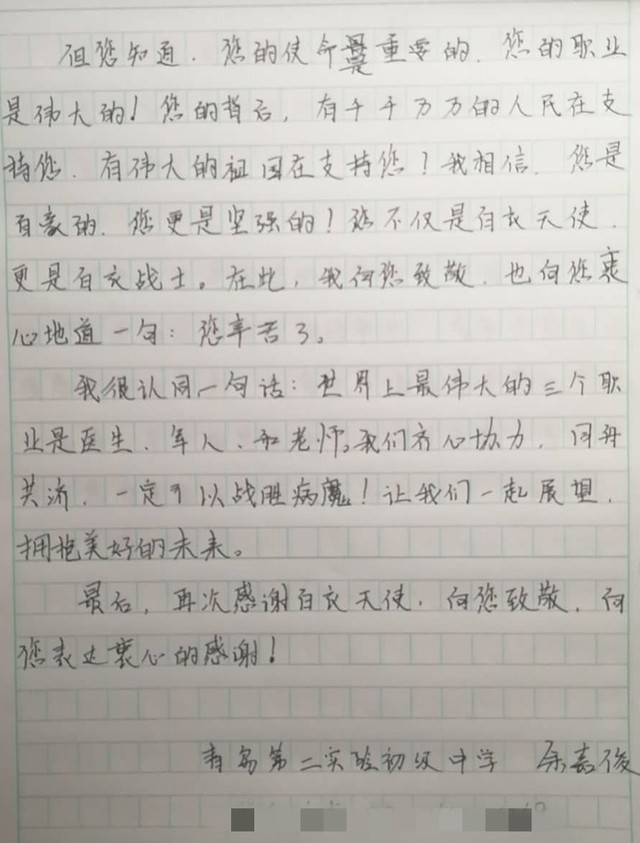 但您知道，您的使命是重要的，您的职业
是伟大的！您的背后，有千千万万的人民在支
持您，有伟大的祖国在支持您！我相信，您是
自豪的，您更是坚强的！您不仅是白衣天使，
更是白衣战士。在此，我向您致敬，也向您衷
心地道一句：您辛苦了。
我很认同一句话：世界上最伟大的三个职
业是医生、军人、和老师。我们齐心协力，同舟
共济，一定可以战胜病魔！让我们一起展望，
拥抱美好的未来。
最后，再次感谢白衣天使，向您致敬，向
您表达衷心的感谢！
青岛第二实验初级中学 余嘉俊